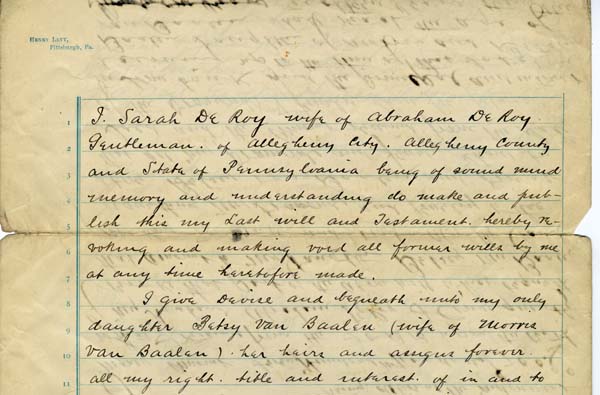 Henry Levy,
Pittsburgh, Pa.
1 I. Sarah De Roy wife of Abraham De Roy
2 Gentleman. of Allegheny City. Allegheny County
3 and State of Pennsylvania being of sound mind
4 memory and understanding do make and pub-
5 lish this my Last will and Testament. hereby re-
6 voking and making void all former wills by me
7 at any time heretofore made.
8 I give Devise and bequeath unto my only
9 daughter Betsy Van Baalen (wife of Morris
10 Van Baalen). her heirs and assigns forever.
11 all my right. title and interest. of in and to